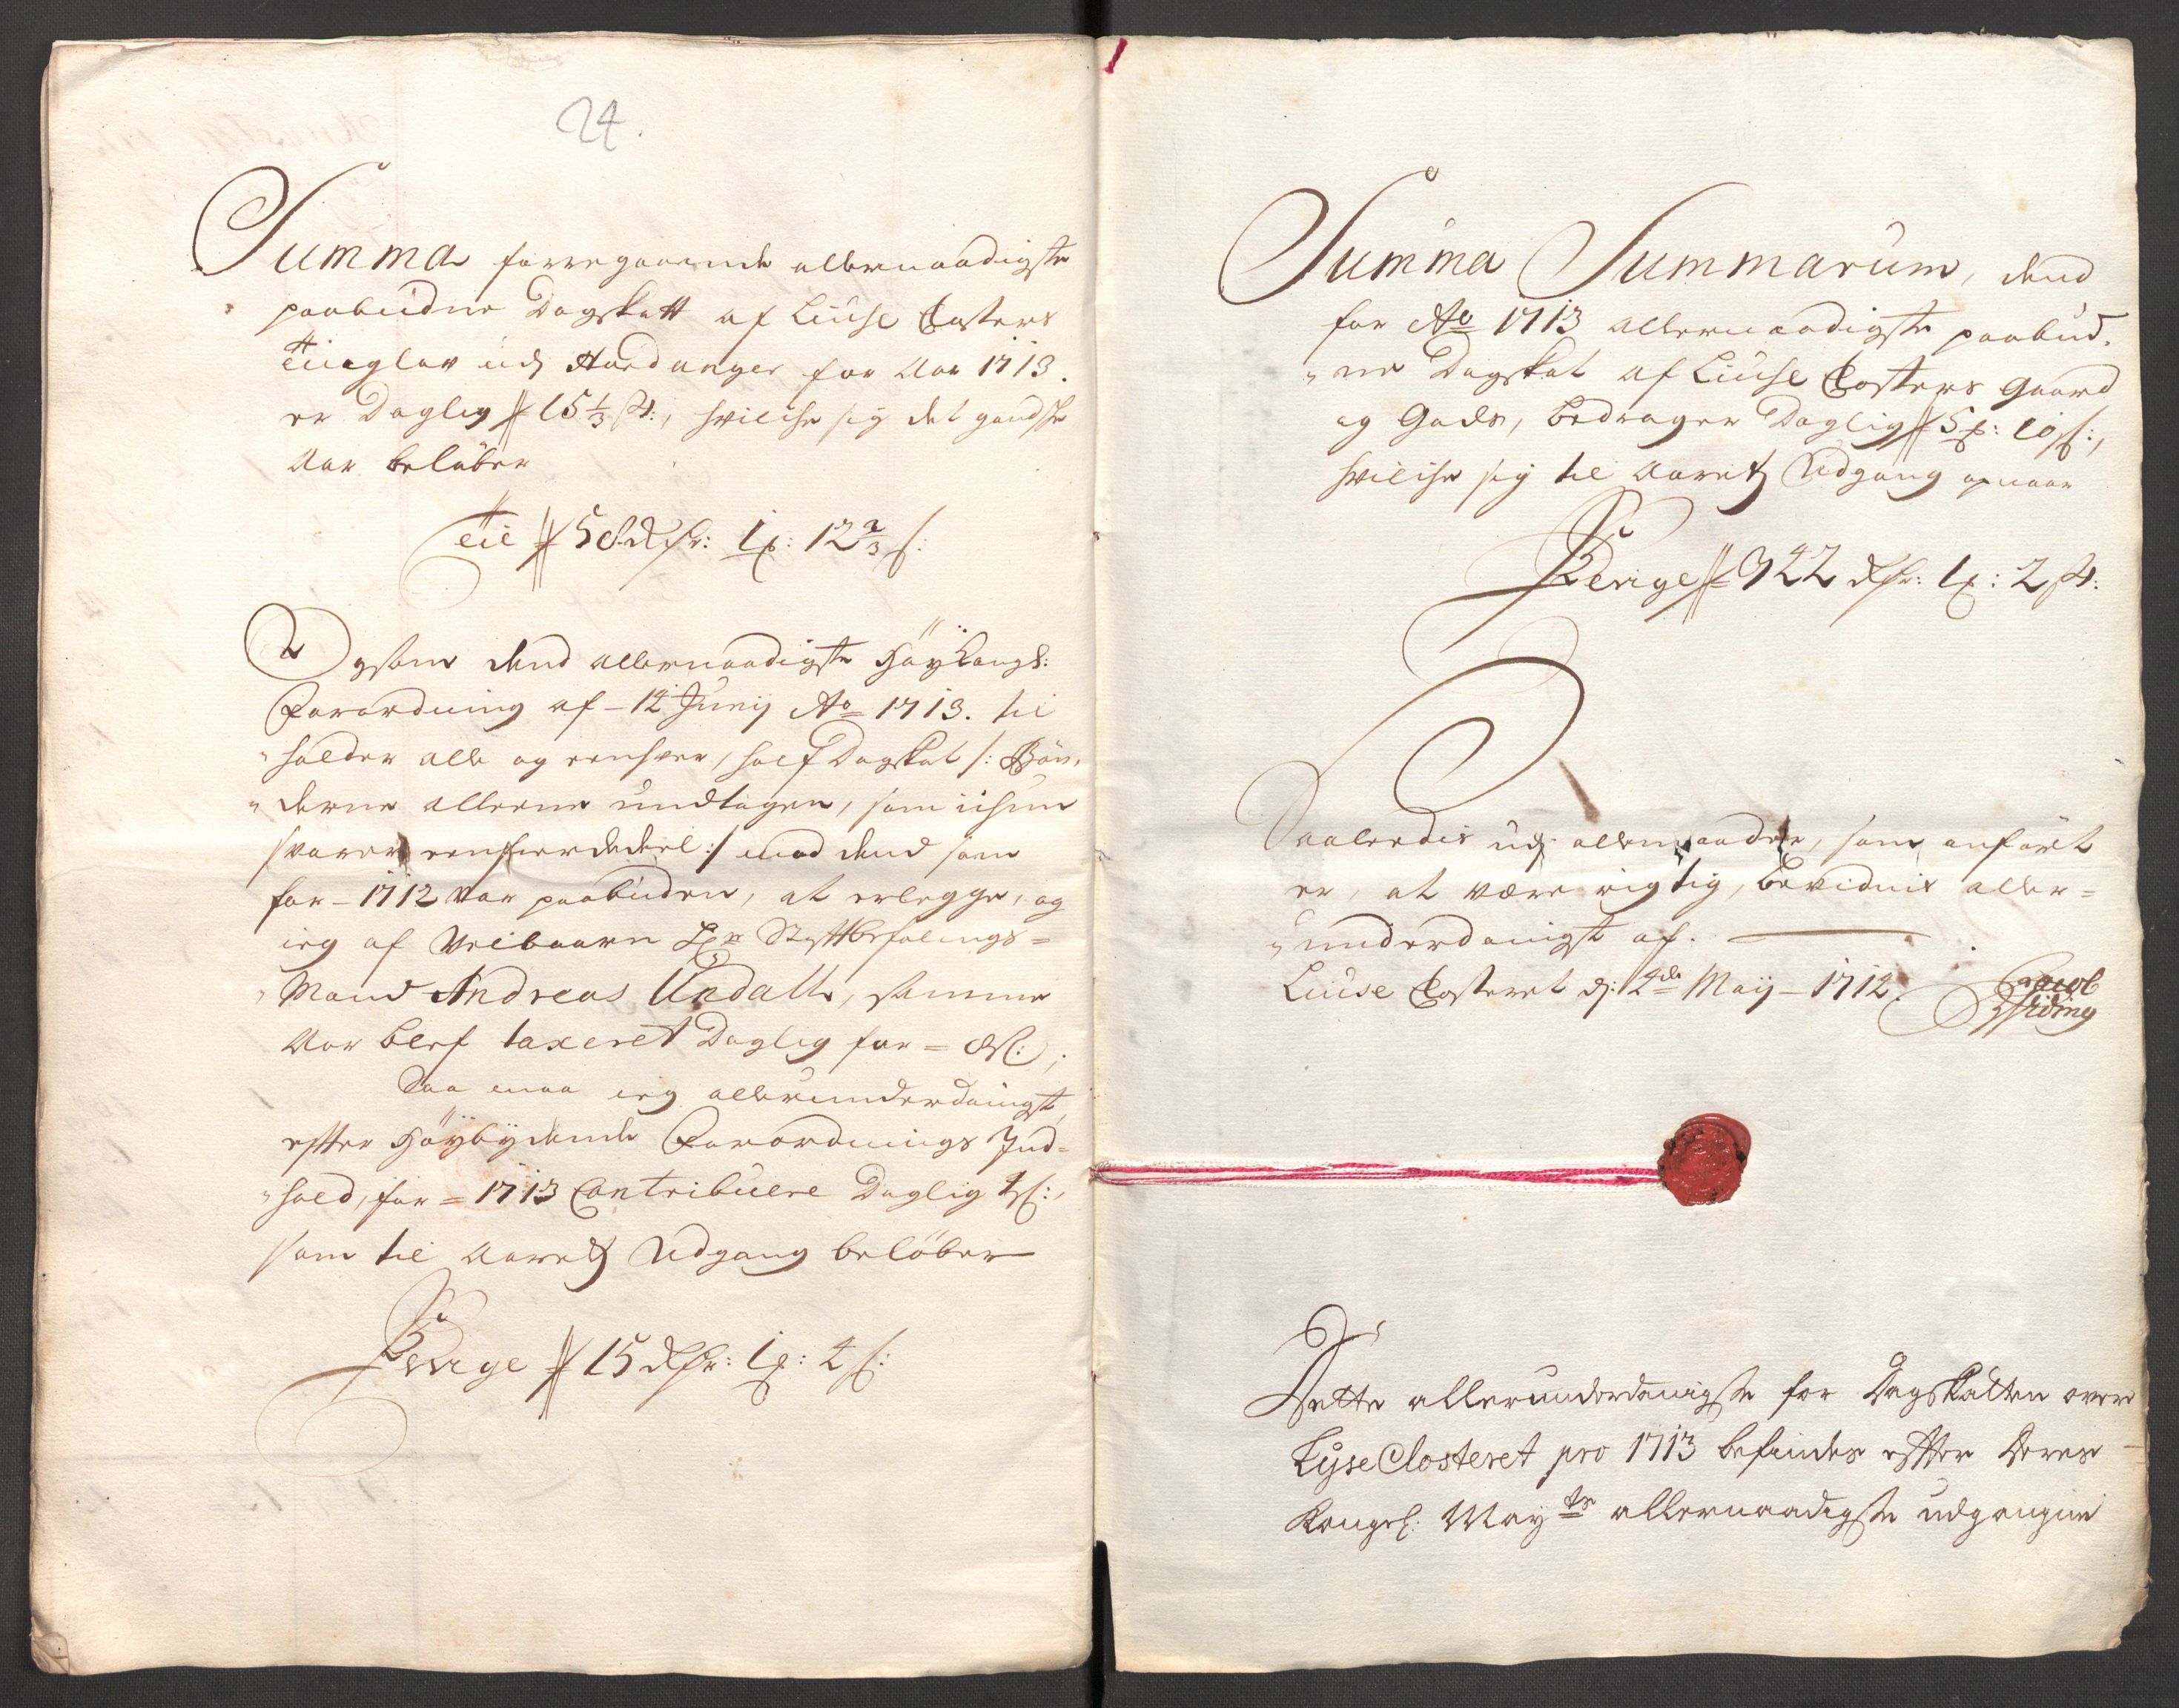 24.
Summa forregaaende allernaadigste
paabudne Dagskatt af Liuse Closters
Tinglav udj Hardanger for Aar 1713.
er Daglig 15 1/3 ß:, hvilche sig det gandsche
Aar beløber
Til 58 Rdlr: 1 ß: 12 2/3 ß:
Ogsom dend allernaadigste Høy Kongl:
Forordning af 14 Junij Ao 1713. til
holder alle og eenhver, half Dagskat /: Bøn„
„derne alleene undtagen, som iichun
svarer eenfierdedeel :/ mod dend som
for 1712 var paabuden, at erlegge, og
ieg af Velbaarn Hr Stifftbefalings=
Mand Andreas Undall, samme
Aar blef taxeret Daglig for 8 ß:,
Saa maa ieg allerunderdanigst,
effter høybydende Forordnings Ind=
„hold, for 1713 Contribuere Daglig 4 ß:,
som til Aaretz Udgang beløber
Penge 15 Rdlr: 1 ß: 4 ß:
Summa Summarum, dend
for Ao 1713 allernaadigste paabud„
„ne Dagskat af Liuse Closters Gaard
og Gods, bedrager Daglig 5 ß: 10 ß:,
hvilche sig til Aaretz Udgang opnaar
Penge 342 Rdlr: 1 ß: 2 ß:
Saaledis udj allemaader, som anført
er, at være rigtig, bevidnis aller=
„underdanigst af.
Liuse Closteret dj: 4de Maij 1712.
Jacob
Widing
Dette allerunderdanigste for Dagskatten over
Lyse Closteret pro 1713 befindes effter Deres
Kongel: Mayts allernaadigste udgangne